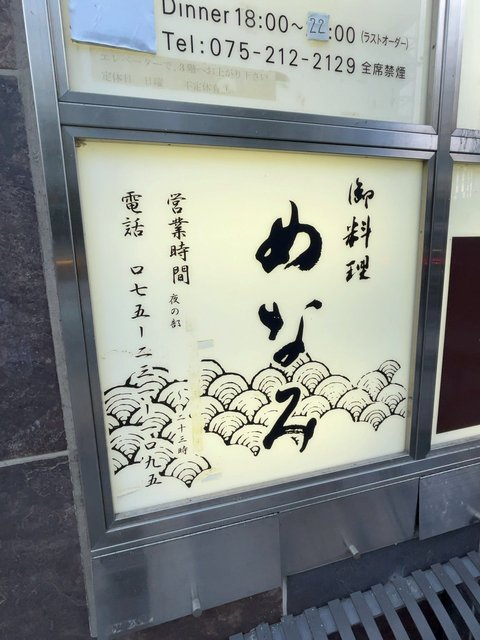 Dinner 18:00～22:00 (ラストオーダー)
Tel:075-212-2129 全席禁煙
エレベーターで、3階へお上がり下さい
定休日 日曜 不定休有り
御料理
めなみ
営業時間 夜の部
十三時
電話 〇七五ー二三一ー一〇九五